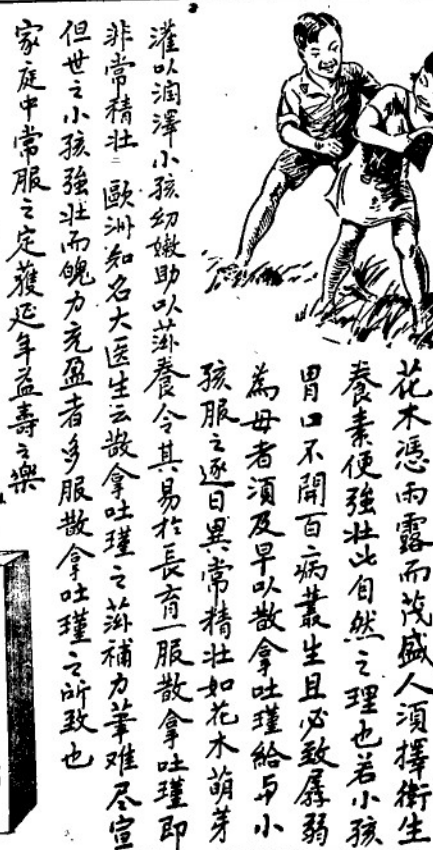 花木憑雨露而茂盛人須擇衛生
養素便強壯此自然之理也若小孩
胃口不開百病叢生且必致孱弱
為母者須及早以散拿吐瑾給与小
孩服之逐日異常精壯如花木萌芽
灌以潤澤小孩幼嫩助以滋養令其易於長育一服散拿吐瑾即
非常精壯 歐洲知名大医生云散拿吐瑾之滋補力筆难尽宣
但世之小孩強壯而魄力充盈者多服散拿吐瑾之所致也
家庭中常服之定獲延年益壽之樂